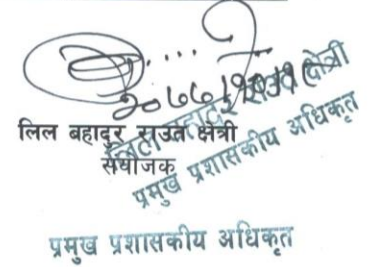 लिल बहादुर राउत क्षेत्री
संयोजक
लिल बहादुर राउत क्षेत्री
प्रमुख प्रशासकीय अधिकृत
प्रमुख प्रशासकीय अधिकृत